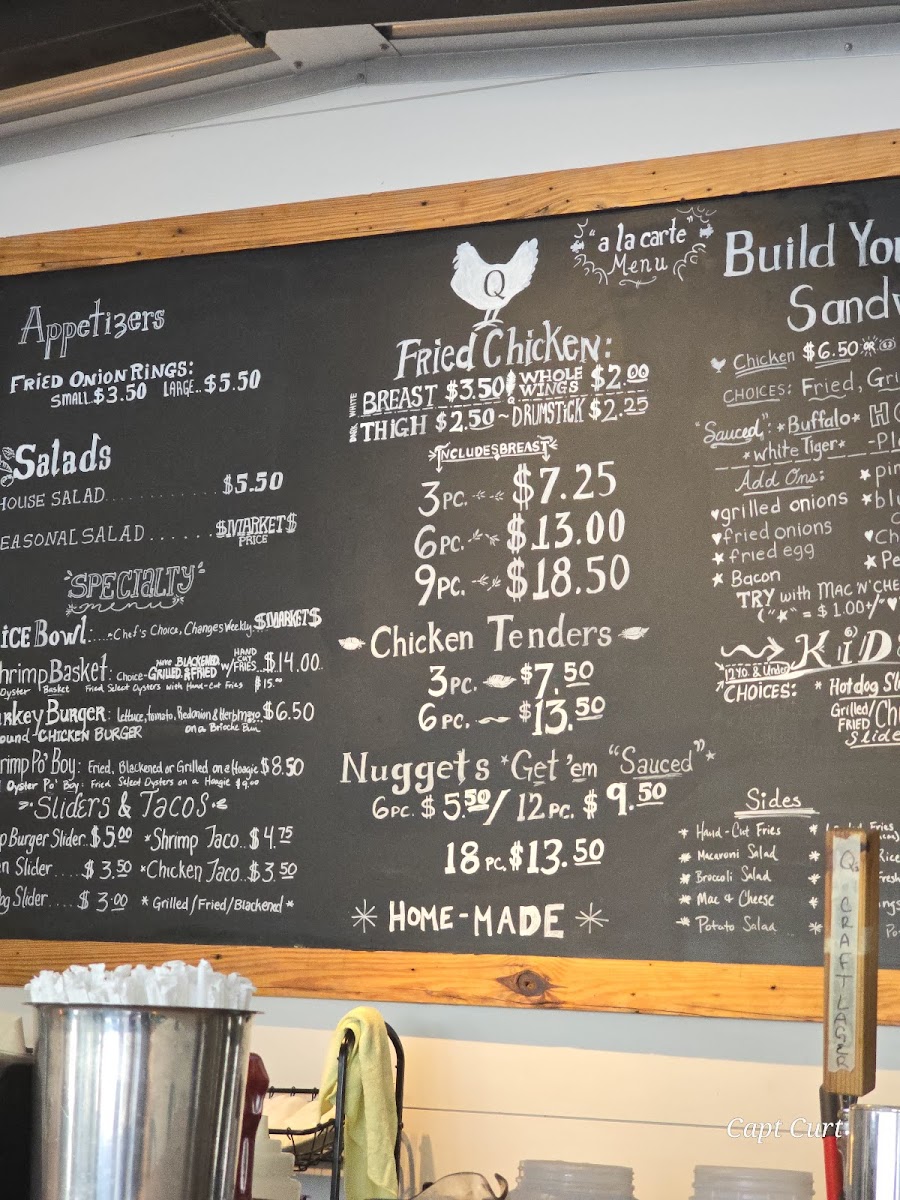 Appetizers
FRIED ONION RINGS:
SMALL..$3.50 LARGE..$5.50
Salads
HOUSE SALAD............$5.50
SEASONAL SALAD......$MARKET$
PRICE
"SPECIALTY"
menu
Bowl:....*Chef's Choice, Changes Weekly..$MARKET$
Shrimp Basket: Choice- BLACKENED
GRILLED & FRIED w/ HAND CUT FRIES..$14.00
Oyster Basket Fried Select Oysters with Hand-Cut Fries $15.00
Burger: Lettuce, tomato, Red onion & Herb mayo $6.50
on a Brioche Bun
CHICKEN BURGER
Po' Boy: Fried, Blackened or Grilled on a Hoagie $8.50
Oyster Po' Boy: Fried Select Oysters on a Hoagie $9.00
Sliders & Tacos
Burger Slider..$5.00 *Shrimp Taco..$4.75
Slider.....$3.50 *Chicken Taco..$3.50
Slider.....$3.00 *Grilled/Fried/Blackened*
Q
"a la carte"
Menu
Fried Chicken:
WHITE BREAST $3.50 WHOLE WINGS $2.00
THIGH $2.50 ~ DRUMSTICK $2.25
INCLUDES BREAST
3PC. $7.25
6PC. $13.00
9PC. $18.50
Chicken Tenders
3PC. $7.50
6PC. $13.50
Nuggets *Get 'em "Sauced"*
6PC. $5.50/ 12PC. $9.50
18PC. $13.50
* HOME-MADE *
Build
Chicken $6.50
CHOICES: Fried,
"Sauced": *Buffalo*
*White Tiger*
Add Ons:
♥grilled onions
♥fried onions
★fried egg
★Bacon
TRY with MAC N' 
("★" = $1.00+/"♥
KiDS
12 Y.O. & Under
CHOICES: *Hotdog
Grilled/
FRIED
Slide
Sides
* Hand-Cut Fries
* Macaroni Salad
* Broccoli Salad
* Mac & Cheese
* Potato Salad
Q
CRAFT LAGER
Capt Curt